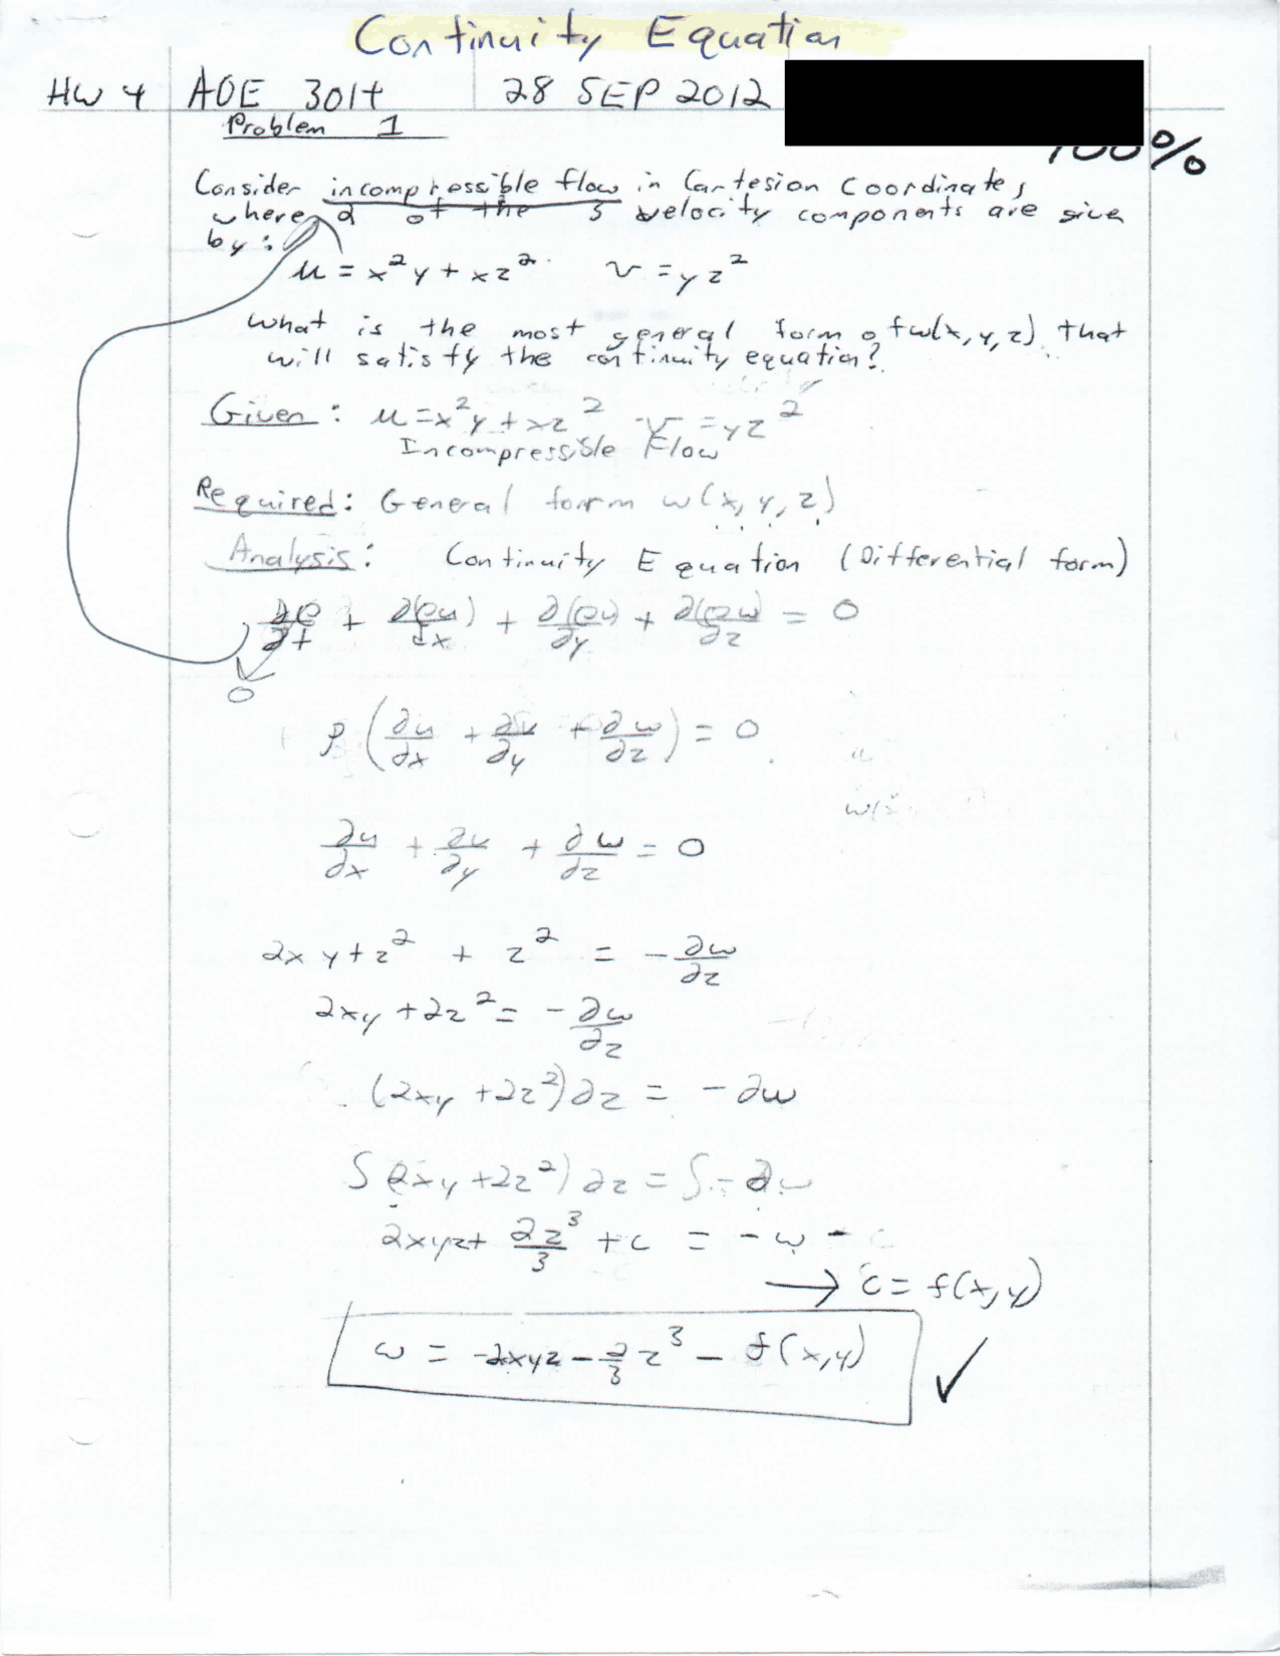 Continuity Equation
HW 4 AOE 3014 28 SEP 2012
100%
Problem 1
Consider incompressible flow in Cartesion Coordinates
where 2 of the 3 velocity components are give
by:
u = x²y + xz² v = yz²
what is the most general form of w(x, y, z) that
will satisfy the continuity equation?
Given: u = x²y + xz² v = yz²
Incompressible Flow
Required: General form w(x, y, z)
Analysis: Continuity Equation (Differential form)
∂ρ/∂t + ∂(ρu)/∂x + ∂(ρv)/∂y + ∂(ρw)/∂z = 0
0
ρ (∂u/∂x + ∂v/∂y + ∂w/∂z) = 0
∂u/∂x + ∂v/∂y + ∂w/∂z = 0
2xy + z² + z² = -∂w/∂z
2xy + 2z² = -∂w/∂z
(2xy + 2z²)∂z = -∂w
∫(2xy + 2z²)∂z = ∫-∂w
2xyz + 2z³/3 + c = -w
→ c = f(x, y)
w = -2xyz - 2/3 z³ - f(x,y) ✓